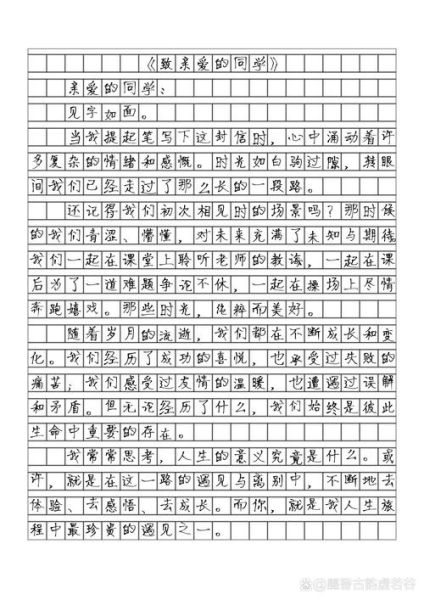 《致亲爱的同学》
亲爱的同学：
见字如面。
当我提起笔写下这封信时，心中涌动着许
多复杂的情绪和感慨。时光如白驹过隙，转眼
间我们已经走过了那么长的一段路。
还记得我们初次相见时的场景吗？那时候
的我们青涩、懵懂，对未来充满了未知与期待
我们一起在课堂上聆听老师的教诲，一起在课
后为了一道难题争论不休，一起在操场上尽情
奔跑嬉戏。那些时光，纯粹而美好。
随着岁月的流逝，我们都在不断成长和变
化。我们经历了成功的喜悦，也承受过失败的
痛苦；我们感受过友情的温暖，也遭遇过误解
和矛盾。但无论经历了什么，我们始终是彼此
生命中重要的存在。
我常常思考，人生的意义究竟是什么。或
许，就是在这一路的遇见与离别中，不断地去
体验、去感悟、去成长。而你，就是我人生旅
程中最珍贵的遇见之一。
@魔晋古韵虚若谷